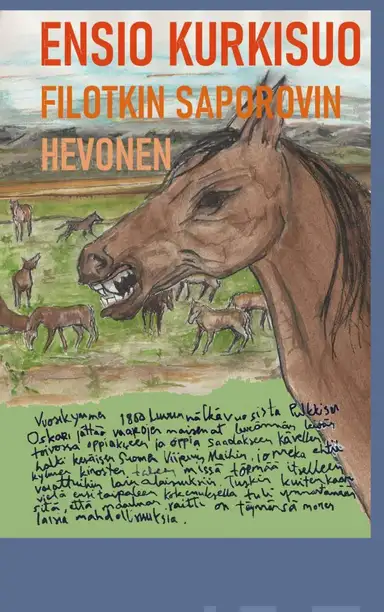 ENSIO KURKISUO
FILOTKIN SAPOROVIN
HEVONEN
Vuosikymmen 1860 luvun nälkävuosista Pulkkisen
Oskari jättää vaarojen maisemat leveämmän leivän
toivossa oppiakseen ja oppia saadakseen kävellen
halki keväisen Suomen Viipurin Maihin, jonneka ehtii
kylmät kinosten missä törmää itselleen
lainalaisuuksiin. Tuskin kuitenkaan
vielä ensitaipaleen kokemuksella tuli ymmärtämään
sitä, että maailman raitti on täynnänsä monen
laisia mahdollisuuksia.